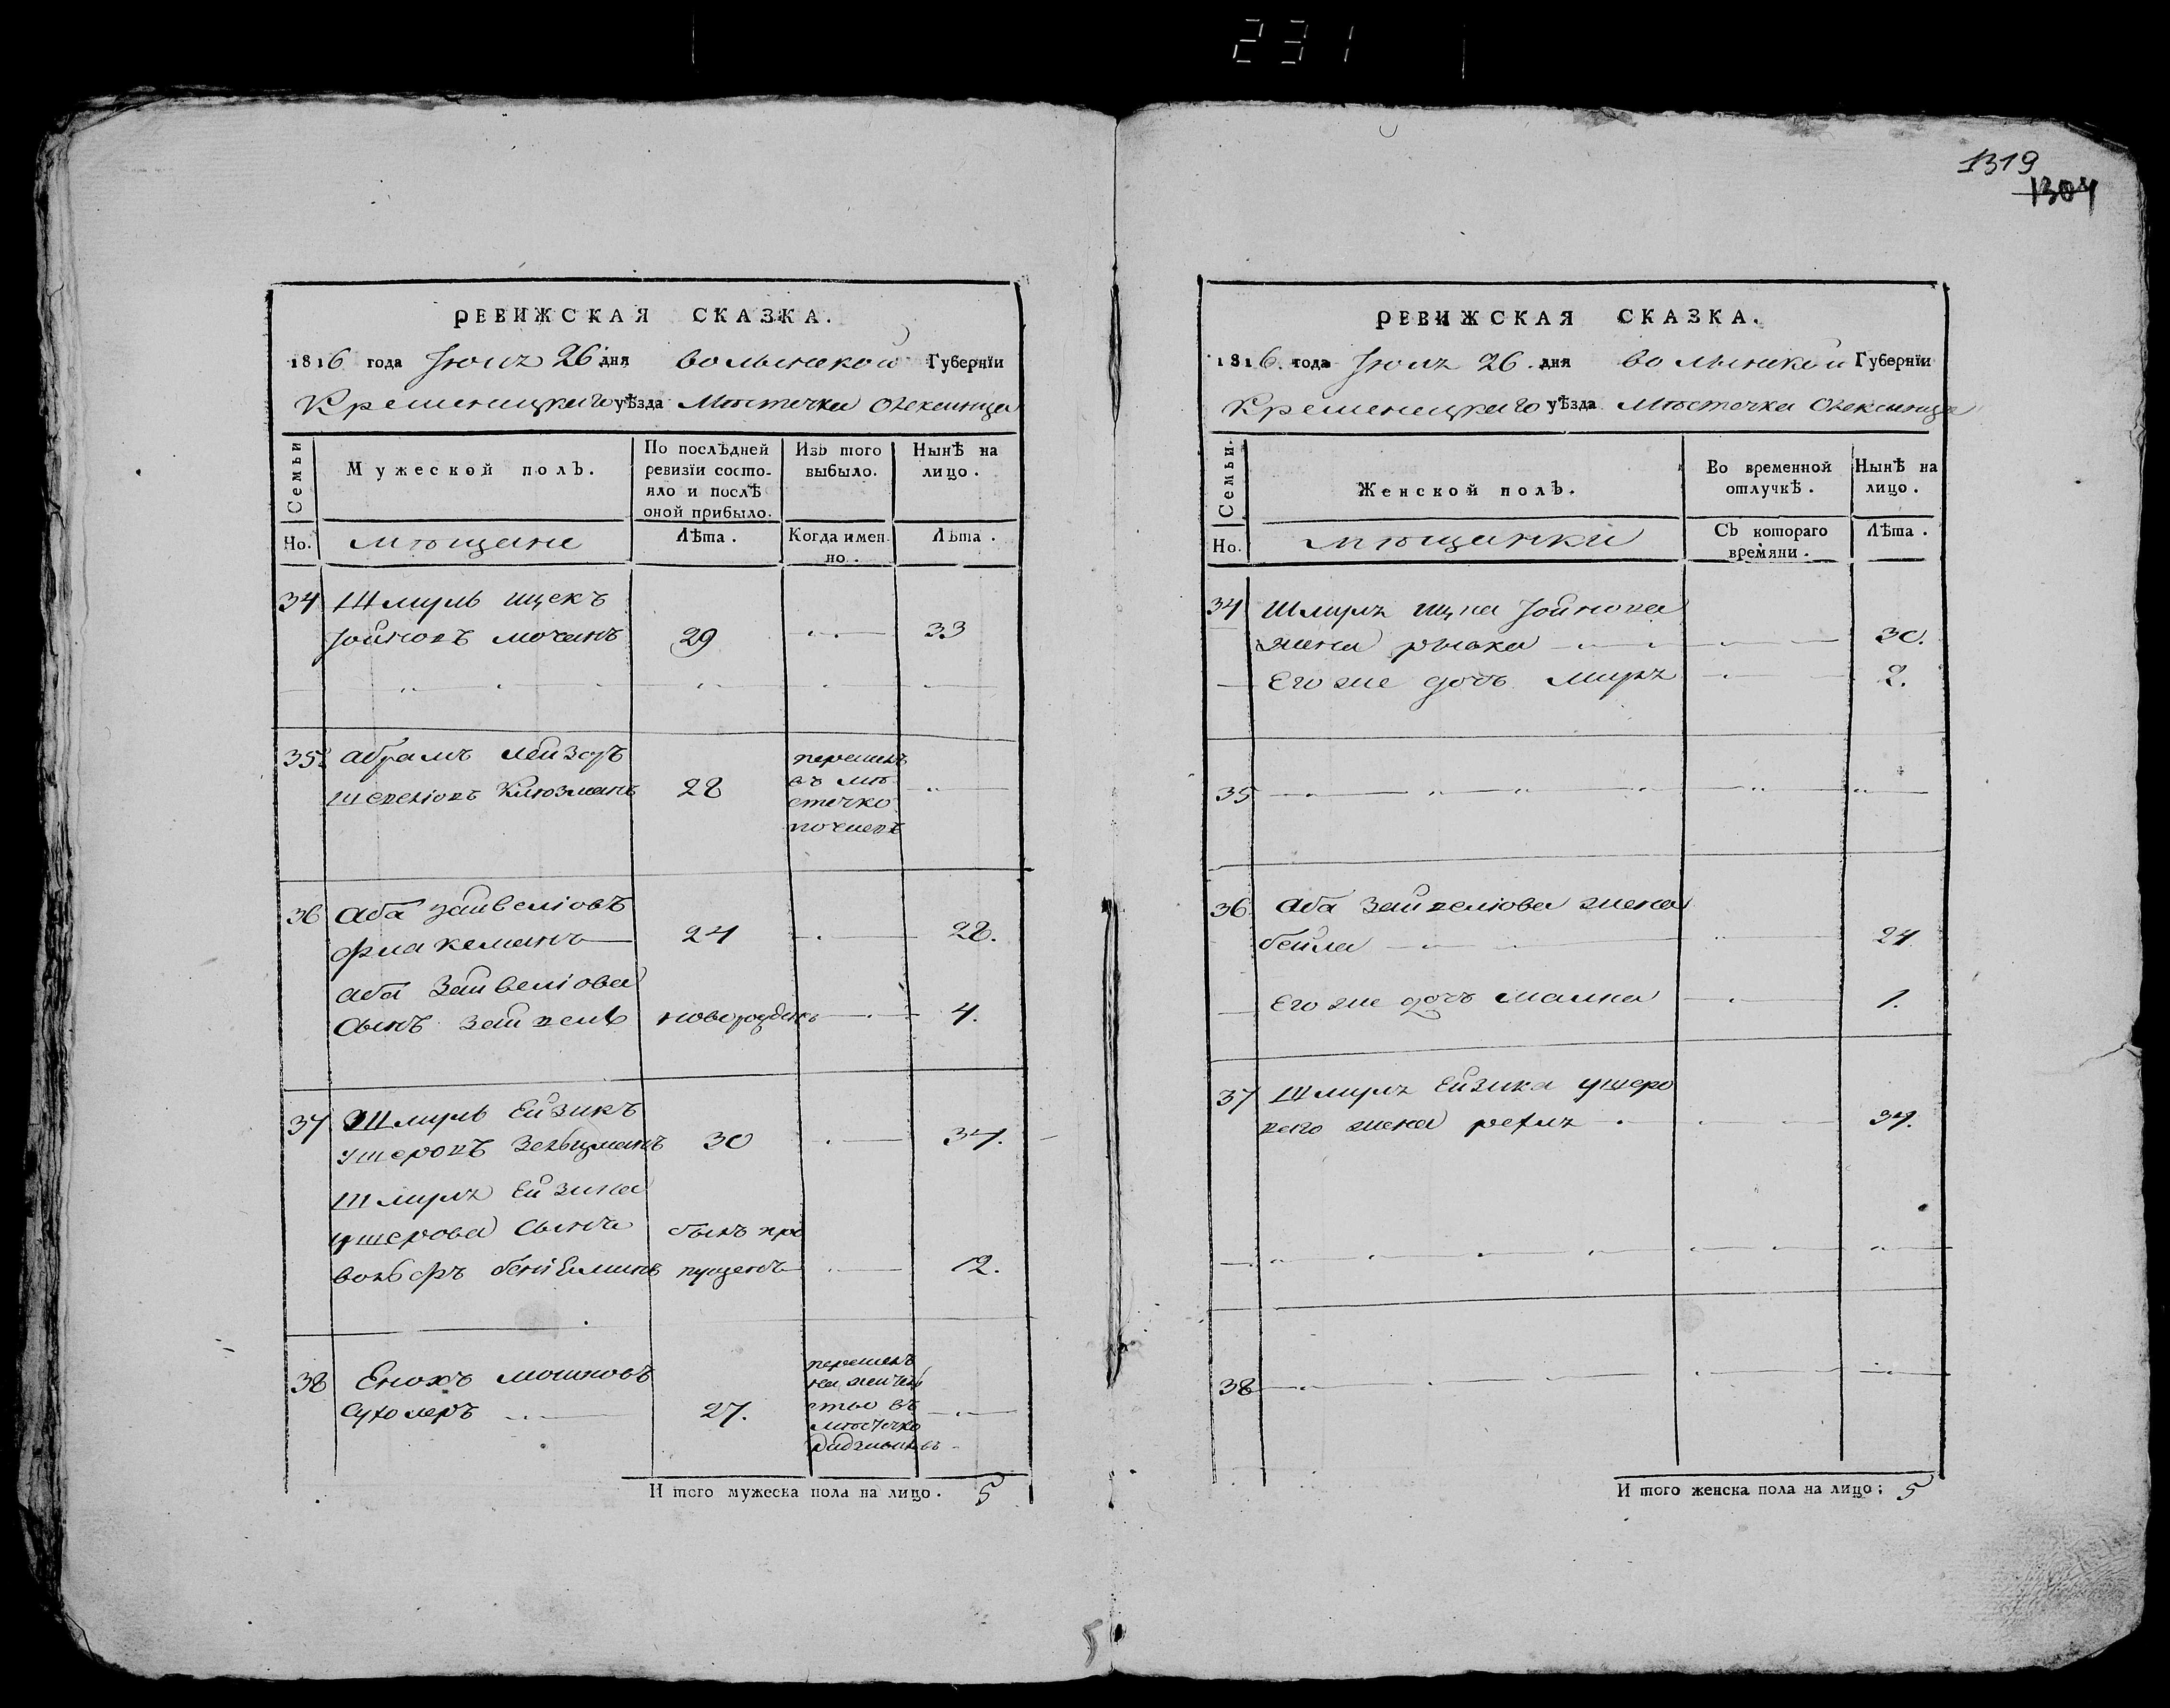 231
1319
1304
РЕВИЖСКАЯ СКАЗКА.
1816 года Іюля 26 дня Волынской Губернїи
Кременецкаго уѣзда Мѣстечка Олексинца
Семьи
Мужеской полъ.
По послѣдней ревизїи состо-
яло и послѣ
оной прибыло.
Изъ того выбыло.
Нынѣ на лицо.
Но.
мѣщане
Лѣта.
Когда имен-
но.
Лѣта.
34 Шмуль Ицекъ
Іойновъ мочанъ 29 33
35. Абрамъ Лейзоръ
Шевелювъ Клюзманъ 28
перешелъ
въ мѣ-
стечко
почаевъ
36 Аба Зайвеліовъ
флакеманъ 24 28.
Аба Зайвеліова
сынъ Зайвель новорожденъ 4.
37 Шмуль Ейзикъ
ушеровъ Зельцманъ 30 34.
Шмуля Ейзика
ушерова сынъ былъ про
вольфъ бениеминъ пущенъ 12.
38 Енохъ мошковъ
Сухолеръ 27.
перешелъ
на житель
ство въ
мѣстечко
Радзивиловъ
И того мужеска пола на лицо. 5
РЕВИЖСКАЯ СКАЗКА.
1816. года Іюля 26. дня Волынской Губернїи
Кременецкаго уѣзда Мѣстечка Олексинца
Семьи.
Женской полъ.
Во временной
отлучкѣ.
Нынѣ на
лицо.
Но.
мѣщанки
Съ котораго
времяни.
Лѣта.
34 Шмуля Ицка Іойнова
жена рывка 30.
Его же дочь Миря 2.
35
36. Аба Зайвеліова жена
бейла 24
Его же дочь малка 1.
37 Шмуля Ейзика ушеро
ваго жена рехля 34.
38
И того женска пола на лицо: 5
5